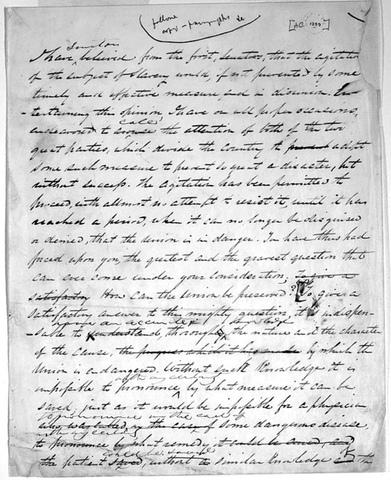 follow
copy - paragraphs &c
[A.C. 1850]
Senators
I have believed from the first, Senators, that the agitation
of the subject of slavery would, if not prevented by some
timely and effective measure end in disunion. En-
tertaining this opinion, I have on all proper occasions,
endeavored to arouse the attention of both of the two
great parties, which divide the country to adopt
some such measure to prevent so great a disaster, but
without success. The agitation has been permitted to
proceed, with almost no attempt to resist it, until it has
reached a period, when it can no longer be disguised
or denied, that the Union is in danger. You have thus had
forced upon you, the greatest and the gravest question that
can ever come under your consideration. To give a
satisfactory How can the Union be preserved? To give a
satisfactory answer to this mighty question, it is indispen-
sable to understand, through the nature and the character
of the cause, by which the
Union is endangered. Without such Knowledge it is
impossible to pronounce by what measure it can be
saved, just as it would be impossible for a physician
of some dangerous disease,
to pronounce by what remedy it could be cured,
the patient saved, without similar Knowledge